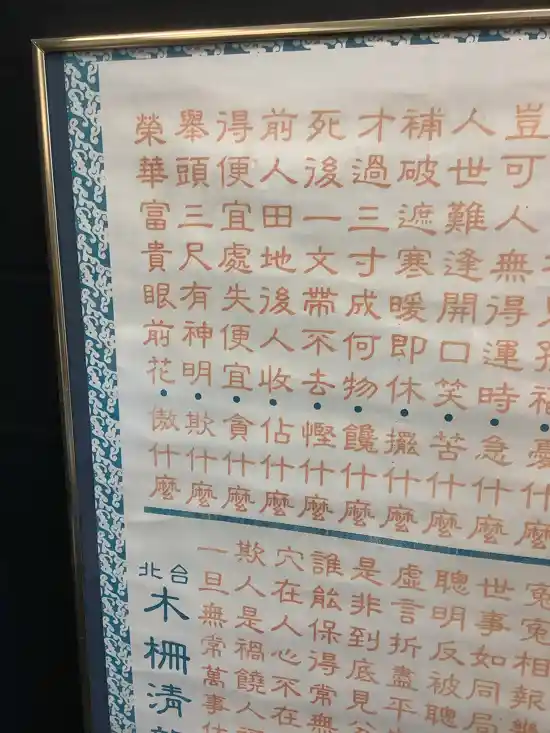 憂什麼
豈可人無得運時・急什麼
人世難逢開口笑・苦什麼
補破遮寒暖即休・擺什麼
才過三寸成何物・饞什麼
死後一文帶不去・慳什麼
前人田地後人收・佔什麼
得便宜處失便宜・貪什麼
舉頭三尺有神明・欺什麼
榮華富貴眼前花・傲什麼
冤冤相報
世事如同局
聰明反被聰
虛言折盡平
是非到底見
誰能保得常無
穴在人心不在
欺人是禍饒人
一旦無常萬事
台北
木柵清